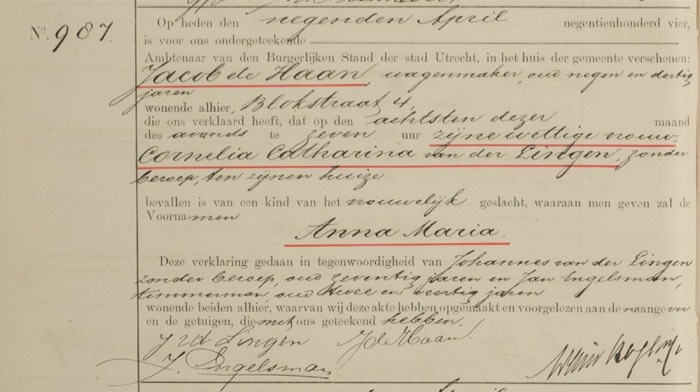 Nº. 987.
Op heden den negenden April negentienhonderd vier,
is voor ons ondergeteekende
Ambtenaar van den Burgerlijken Stand der stad Utrecht, in het huis der gemeente verschenen:
Jacob de Haan, wagenmaker, oud negen en dertig
jaren
wonende alhier, Blokstraat 4,
die ons verklaard heeft, dat op den achtsten dezer maand
des avonds te zeven uur zijne wettige vrouw,
Cornelia Catharina van der Lingen, zonder
beroep, ten zijnen huize
bevallen is van een kind van het vrouwelijk geslacht, waaraan men geven zal de
Voornamen
Anna Maria.
Deze verklaring gedaan in tegenwoordigheid van Johannes van der Lingen
zonder beroep, oud zeventig jaren en Jan Engelsman,
timmerman, oud twee en veertig jaren
wonende beiden alhier, waarvan wij deze akte hebben opgemaakt en voorgelezen aan de aangever
en de getuigen, die met ons geteekend hebben.
J vd Lingen J de Haan
J. Engelsman
April